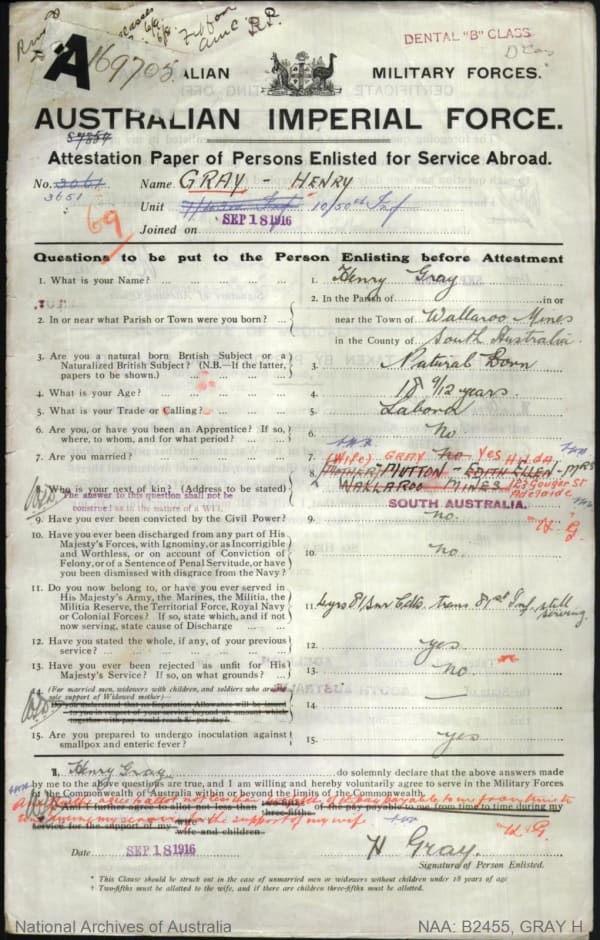 DENTAL "B" CLASS
A 169705
ALIAN MILITARY FORCES.
AUSTRALIAN IMPERIAL FORCE.
Attestation Paper of Persons Enlisted for Service Abroad.
No. 3061 Name GRAY - HENRY
3651
Unit 10/50th Inf
69
Joined on SEP 18 1916
Questions to be put to the Person Enlisting before Attestment
1. What is your Name? ... 1. Henry Gray
2. In or near what Parish or Town were you born? ... 2. In the Parish of in or
near the Town of Wallaroo Mines
in the County of South Australia.
3. Are you a natural born British Subject or a
Naturalized British Subject? (N.B.—If the latter,
papers to be shown.) ... 3. Natural Born
4. What is your Age? ... 4. 18 9/12 years.
5. What is your Trade or Calling? ... 5. Laborer
6. Are you, or have you been an Apprentice? If so,
where, to whom, and for what period? ... 6. No
7. Are you married? ... 7. no Yes
(Wife) GRAY Hilda
8. Who is your next of kin? (Address to be stated) 8. (MOTHER) MUTTON - EDITH ELLEN - MRS
WALLAROO MINES 123 Gouger St
Adelaide
The answer to this question shall not be
construed as in the nature of a WILL
SOUTH AUSTRALIA.
H G
9. Have you ever been convicted by the Civil Power? 9. no.
10. Have you ever been discharged from any part of His
Majesty's Forces, with Ignominy, or as Incorrigible
and Worthless, or on account of Conviction of
Felony, or of a Sentence of Penal Servitude, or have
you been dismissed with disgrace from the Navy? 10. no.
11. Do you now belong to, or have you ever served in
His Majesty's Army, the Marines, the Militia, the
Militia Reserve, the Territorial Force, Royal Navy
or Colonial Forces? If so, state which, and if not
now serving, state cause of Discharge ... 11. 4 yrs 81 Snr Cdts. trans 81st Inf, still
serving.
12. Have you stated the whole, if any, of your previous
service? ... 12. yes
13. Have you ever been rejected as unfit for His
Majesty's Service? If so, on what grounds? ... 13. no
14. (For married men, widowers with children, and soldiers who are the
sole support of Widowed mother)—
Do you understand that no Separation Allowance will be issued
to you in respect of your service beyond an amount which
together with pay would reach 8/- per day? 14. —
15. Are you prepared to undergo inoculation against
smallpox and enteric fever? 15. yes
I, Henry Gray do solemnly declare that the above answers made
by me to the above questions are true, and I am willing and hereby voluntarily agree to serve in the Military
Forces of the Commonwealth of Australia within or beyond the limits of the Commonwealth.
And I further agree to allot not less than
three-fifths of the pay payable to me from time to time during my
service for the support of my wife
wife and children.
for the support of my wife
H G.
Date SEP 18 1916 H Gray.
Signature of Person Enlisted.
* This Clause should be struck out in the case of unmarried men or widowers without children under 18 years of age
† Two-fifths must be allotted to the wife, and if there are children three-fifths must be allotted.
National Archives of Australia NAA: B2455, GRAY H